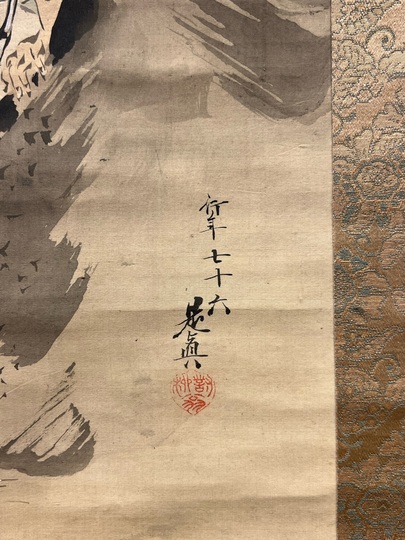 行年七十六
是真